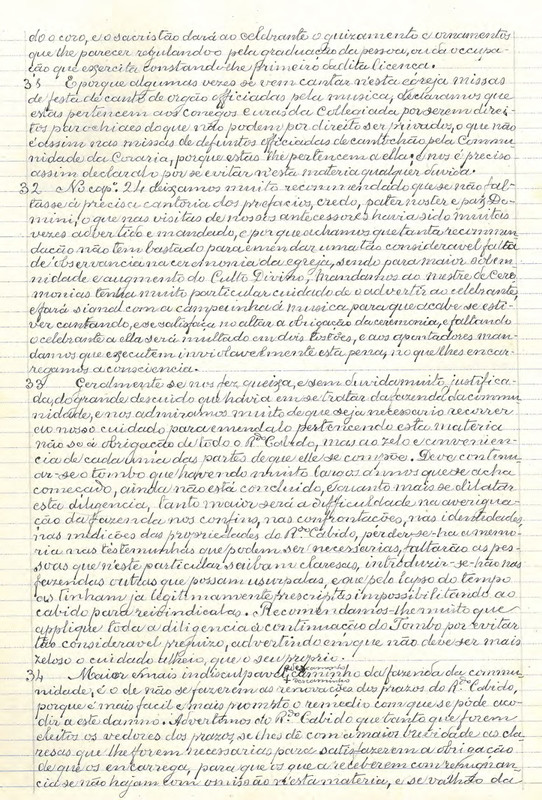 do o coro, e o sacristão dará ao celebrante o guizamento e ornamentos
que lhe parecer regulando o pela graduação da pessoa, ou da occupa-
ção que exercita constando-lhe primeiro da dita licença.
31 E porque algumas vezes se vem cantar n'esta egreja missas
de festa de canto de orgão officiadas pela musica, declaramos que
estas pertencem aos conegos curas da Collegiada, por serem direi-
tos parochiaes do que não podem por direito ser privados, o que não
é assim nas missas de defuntos officiadas de cantochão pela Commu-
nidade da Coraria, porque estas lhe pertencem a ella; e nos é preciso
assim declaral-o por se evitar n'esta materia qualquer duvida.
32 No cap.º 21 deixamos muito recommendado que se não fal-
tasse á precisa cantoria dos prefacios, credo, pater noster e pax Do-
mini, o que nas visitas de nossos antecessores havia sido muitas
vezes advertido e mandado, e porque achamos que tanta recommen-
dação não tem bastado para emendar uma tão consideravel falta
de observancia na ceremonia da egreja, sendo para maior solem-
nidade e augmento do Culto Divino, Mandamos ao mestre de Cere-
monias tenha muito particular cuidado de o advertir ao celebrante
e fará signal com a campainha á musica para que acabe se esti-
ver cantando, e se satisfaça no altar a obrigação da ceremonia, e faltando
o celebrante a ella será multado em dois tostões, e aos apontadores man-
damos que executem inviolavelmente esta pena, no que lhes encar-
regamos a consciencia.
33 Geralmente se nos fez queixa, e sem duvida muito justifica-
da, do grande descuido que havia em se tratar da fazenda da commu-
nidade, e nos admiramos muito de que seja necessario recorrer
ao nosso cuidado para emendal-o pertencendo esta materia
não só á obrigação de todo o R.do Cabido, mas ao zelo e convenien-
cia de cada uma das partes de que elle se compõe. Deve continu-
ar-se o tombo que havendo muito largos annos que se acha
começado, ainda não está concluido, e quanto mais se dilatar
esta diligencia, tanto maior será a difficuldade na averigua-
ção da fazenda nos confins, nas confrontações, nas identidades
nas medições das propriedades do R.do Cabido, perder-se-ha a memo-
ria nas testemunhas que podem ser necessarias, faltarão as pes-
soas que n'este particular saibam claresas, introduzir-se-hão nas
fazendas outras que possam usurpalas, e que pelo lapso do tempo
as tenham já legitimamente prescriptas impossibilitando ao
cabido para reivindicalas. Recomendamos-lhe muito que
applique toda a diligencia á continuação do Tombo por evitar
tão consideravel prejuizo, advertindo em que não deve ser mais
zeloso o cuidado alheio, que o seu proprio.
34 Maior e mais indisculpavel caminho da fazenda da commu-
nidade, é o de não se fazerem as renovações dos prazos do R.do Cabido,
porque é mais facil e mais prompto o remedio com que se póde aco-
dir a este damno. Advertimos ao R.do Cabido que tanto que forem
eleitos os vedores dos prazos, se lhes dê com a maior brevidade as cla-
resas que lhe forem necessarias para satisfazerem a obrigação
de que os encarrega, para que os que a receberem com repugnan-
cia se não hajam com omissão n'esta materia, e se valhão da